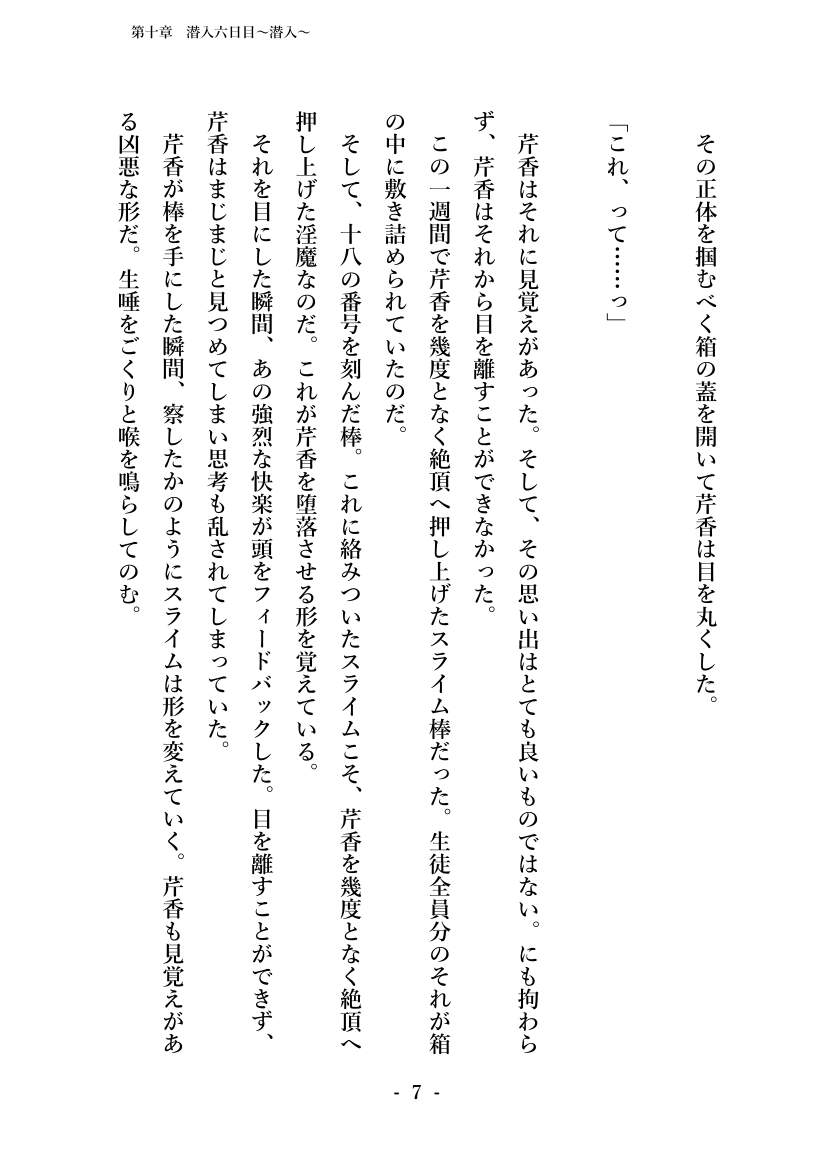 第十章　潜入六日目～潜入～
その正体を掴むべく箱の蓋を開いて芹香は目を丸くした。
「これ、って……っ」
芹香はそれに見覚えがあった。そして、その思い出はとても良いものではない。にも拘わら
ず、芹香はそれから目を離すことができなかった。
この一週間で芹香を幾度となく絶頂へ押し上げたスライム棒だった。生徒全員分のそれが箱
の中に敷き詰められていたのだ。
そして、十八の番号を刻んだ棒。これに絡みついたスライムこそ、芹香を幾度となく絶頂へ
押し上げた淫魔なのだ。これが芹香を堕落させる形を覚えている。
それを目にした瞬間、あの強烈な快楽が頭をフィードバックした。目を離すことができず、
芹香はまじまじと見つめてしまい思考も乱されてしまっていた。
芹香が棒を手にした瞬間、察したかのようにスライムは形を変えていく。芹香も見覚えがあ
る凶悪な形だ。生唾をごくりと喉を鳴らしてのむ。
- 7 -